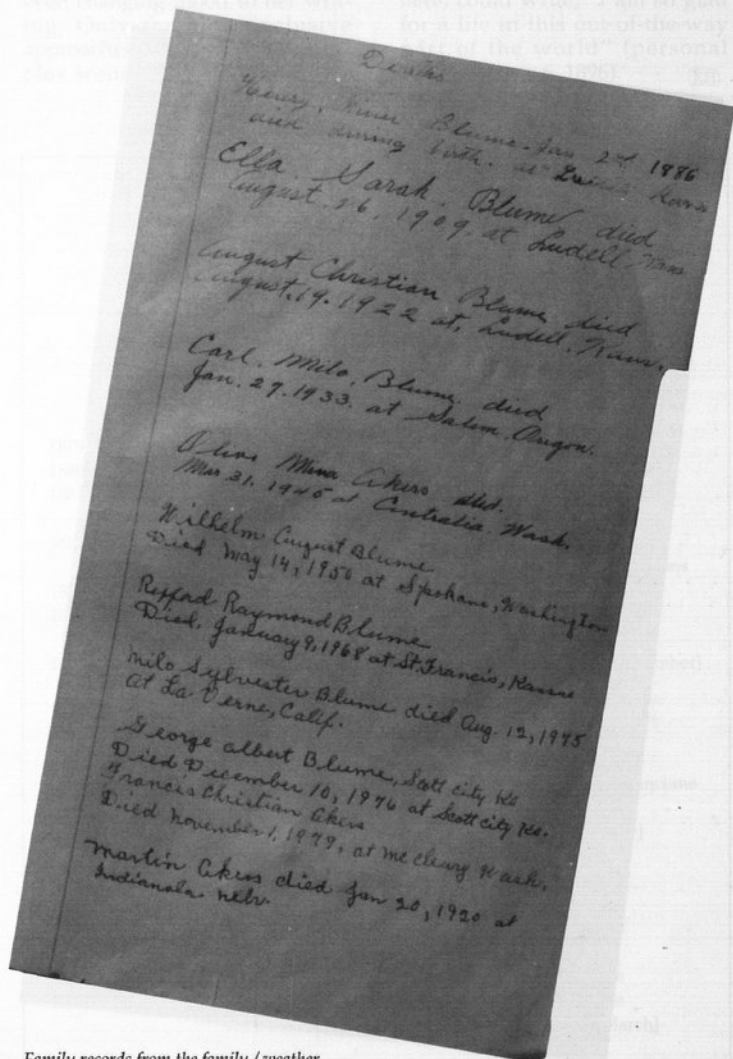 Deaths
Henry Blume Jan 2nd 1886
died during birth. at Kans
Ella. Sarah. Blume died
August. 26. 1909. at Ludell Kans
August Christian Blume died
August. 19. 1922 at, Ludell. Kans.
Carl. Milo. Blume. died
Jan. 27. 1933. at Salem. Oregon.
Olive Akers died.
Mar 31. 1945 at Centralia. Wash.
Wilhelm August Blume
Died May 14, 1950 at Spokane, Washington
Raymond Blume
Died, January 9, 1968 at St Francis, Kansas
Milo Sylvester Blume died Aug. 12, 1975
at La Verne, Calif.
George albert Blume, Scott city Ks
Died December 10, 1976 at Scott city Ks.
Francis Christian Akers
Died November 1, 1979, at Mc Cleary Wash.
Martin Akers died Jan 20, 1920 at
Indianola Nebr.
Family records from the family
for a life in this out-of-the-way
part of the world" (personal